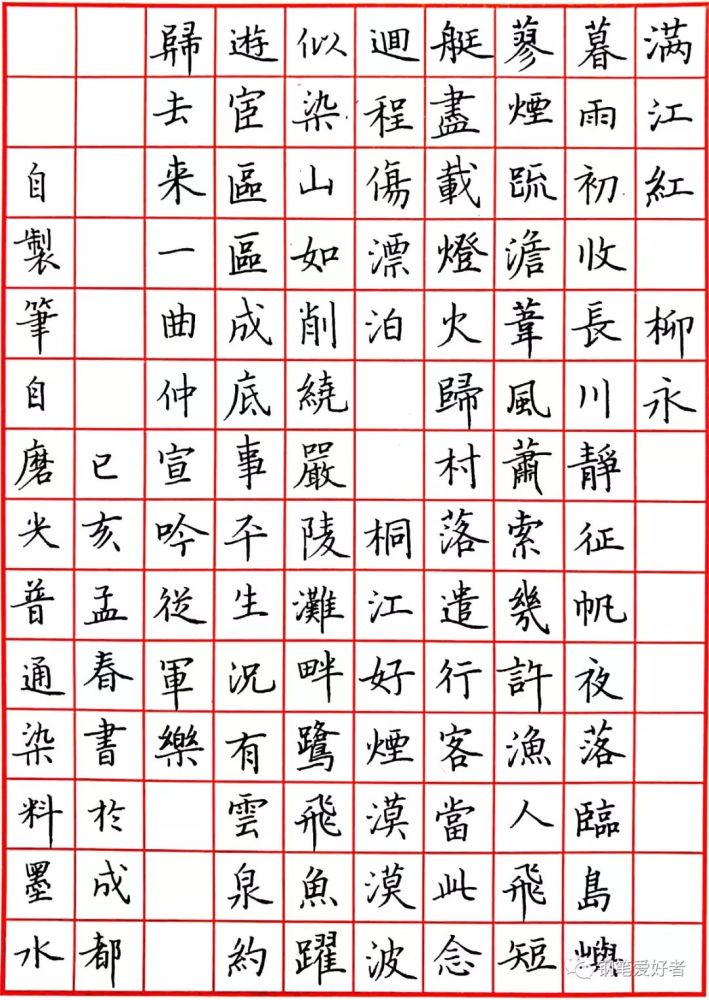 满江紅 柳永
暮雨初收長川靜征帆夜落臨島嶼
蓼煙疏澹葦風蕭索幾許漁人飛短
艇盡載燈火歸村落遣行客當此念
迴程傷漂泊 桐江好煙漠漠波
似染山如削繞嚴陵灘畔鷺飛魚躍
遊宦區區成底事平生況有雲泉約
歸去来一曲仲宣吟從軍樂
已亥孟春書於成都
自製筆自磨尖普通染料墨水
钢笔爱好者